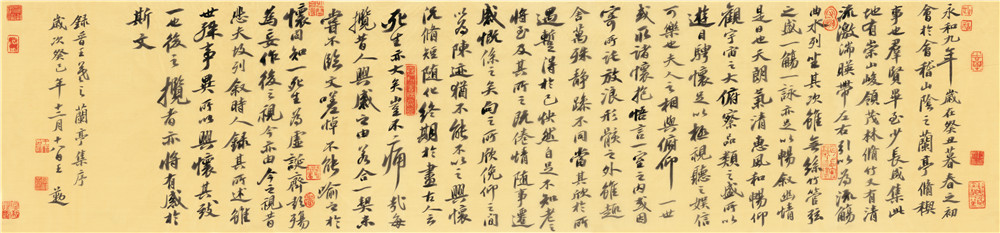 永和九年歲在癸丑暮春之初
會於會稽山陰之蘭亭脩禊
事也群賢畢至少長咸集此
地有崇山峻領茂林脩竹又有清
流激湍暎帶左右引以為流觴
曲水列坐其次雖無絲竹管弦
之盛一觴一詠亦足以暢叙幽情
是日也天朗氣清惠風和暢仰
觀宇宙之大俯察品類之盛所以
遊目騁懷足以極視聽之娛信
可樂也夫人之相與俯仰一世
或取諸懷抱悟言一室之內或因
寄所託放浪形骸之外雖趣
舍萬殊靜躁不同當其欣於所
遇暫得於己快然自足不知老之
將至及其所之既倦情隨事遷
感慨係之矣向之所欣俛仰之間
以為陳迹猶不能不以之興懷
況脩短隨化終期於盡古人云
死生亦大矣豈不痛哉每
攬昔人興感之由若合一契未
嘗不臨文嗟悼不能喻之於
懷固知一死生為虛誕齊彭殤
為妄作後之視今亦由今之視昔
悲夫故列叙時人錄其所述雖
世殊事異所以興懷其致
一也後之攬者亦將有感於
斯文
錄晉王羲之蘭亭集序
歲次癸巳年十二月十八日王